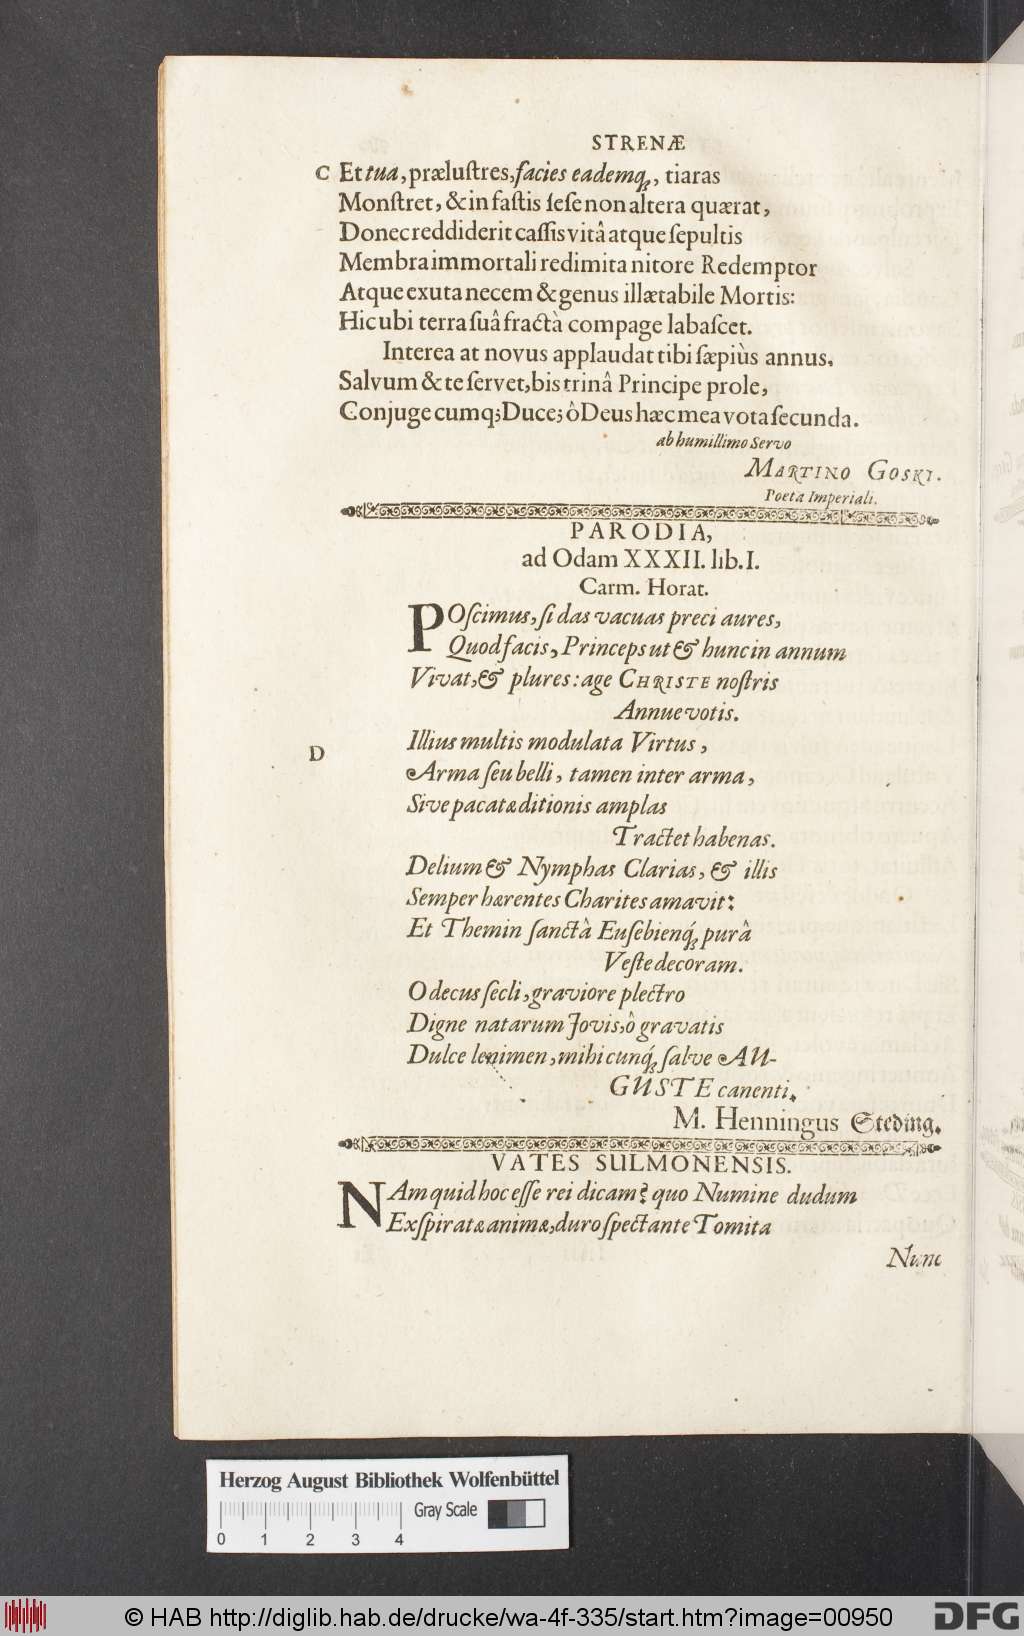 STRENÆ
C Et tua, præluſtres, facies eademq́;, tiaras
Monſtret, & in faſtis ſeſe non altera quærat,
Donec reddiderit caſſis vitâ atque ſepultis
Membra immortali redimita nitore Redemptor
Atque exuta necem & genus illætabile Mortis:
Hic ubi terra ſuâ fractà compage labaſcet.
Interea at novus applaudat tibi ſæpiùs annus,
Salvum & te ſervet, bis trinâ Principe prole,
Conjuge cumq; Duce; ô Deus hæc mea vota ſecunda.
ab humillimo Servo
MARTINO GOSKI.
Poeta Imperiali.
PARODIA,
ad Odam XXXII. lib. I.
Carm. Horat.
POſcimus, ſi das vacuas preci aures,
Quod facis, Princeps ut & hunc in annum
Vivat, & plures: age CHRISTE noſtris
Annue votis.
D Illius multis modulata Virtus,
Arma ſeu belli, tamen inter arma,
Sive pacatæ ditionis amplas
Tractet habenas.
Delium & Nymphas Clarias, & illis
Semper hærentes Charites amavit:
Et Themin ſanctâ Euſebienq́; purâ
Veſte decoram.
O decus ſecli, graviore plectro
Digne natarum Jovis, ô gravatis
Dulce lenimen, mihi cunq́; ſalve AU-
GUSTE canenti.
M. Henningus Steding.
VATES SULMONENSIS.
NAm quid hoc eſſe rei dicam? quo Numine dudum
Exſpiratæ animæ, duro ſpectante Tomita
Nunc
Herzog August Bibliothek Wolfenbüttel
Gray Scale
0 1 2 3 4
© HAB http://diglib.hab.de/drucke/wa-4f-335/start.htm?image=00950
DFG